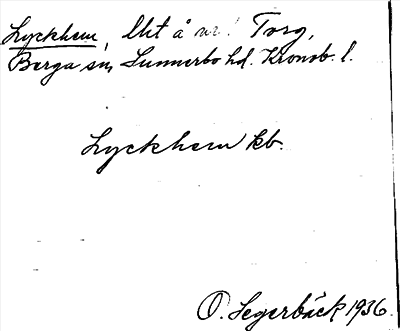 Lyckhem, lht å nr 1 Torg,
Berga sn, Sunnerbo hd. Kronob. l.
Lyckhem kb.
O. Segerbäck 1936.